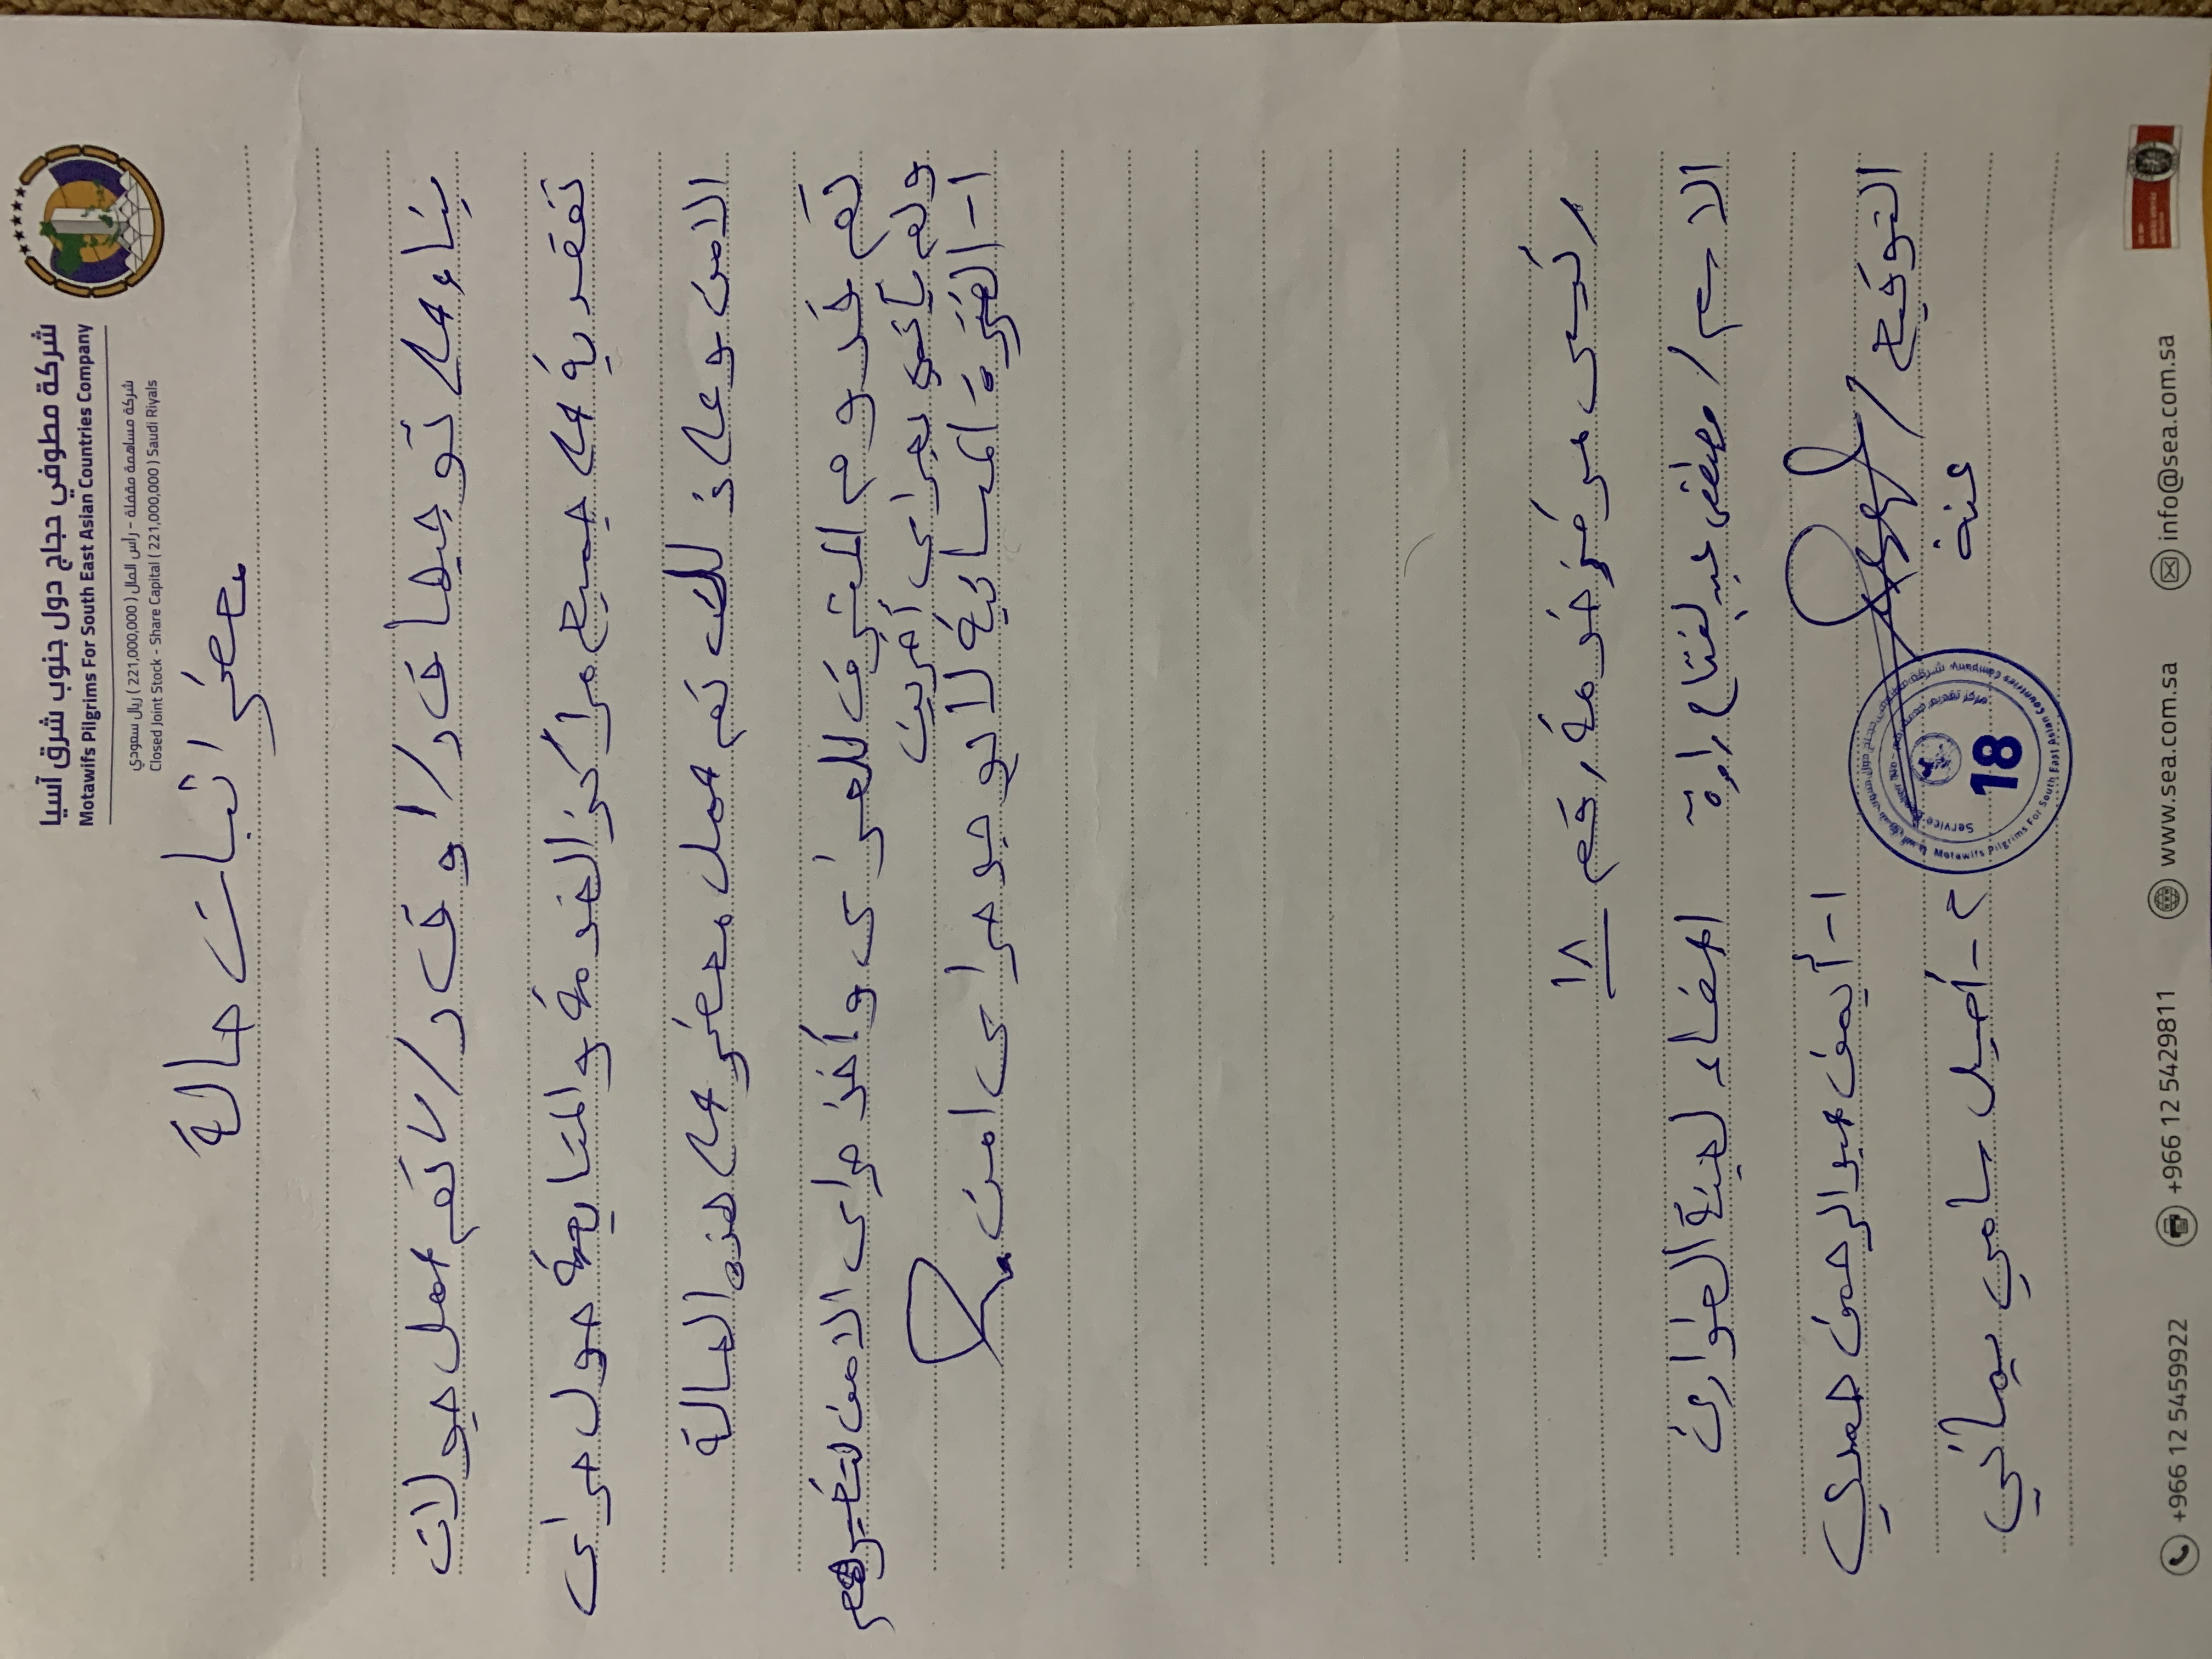 شركة مطوفي حجاج دول جنوب شرق آسيا
Motawifs Pilgrims For South East Asian Countries Company
شركة مساهمة مقفلة - رأس المال ( 221,000,000 ) ريال سعودي
Closed Joint Stock - Share Capital ( 221,000,000 ) Saudi Riyals
محضر اثبات حالة
بناء على توجيهات ق د/١ و ق د/٧ تم عمل جولات
تفقدية على جميع مراكز الخدمة والمتابعة حول حراس
الامن وعلى ذلك تم عمل محضر على هذه الحالة
تم قدوم المشرف للحراس وأخذ حراس الامن لتغيرهم
ولم يأتي بحراس أخرين
١- الفترة المسائية لا يوجد حراس امن
رئيس مركز خدمة رقم ١٨
الاسم / مصطفى عبدالفتاح راوة اعضاء لجنة الطوارئ
١- أيمن عبدالرحمن حمدي
التوقيع /
عنه
٢- أصيل سامي يماني
مركز تقديم خدمة رقم - Service Center No
18
شركة مطوفي حجاج دول جنوب شرق آسيا
Motawifs Pilgrims For South East Asian Countries Company
+966 12 5459922 +966 12 5429811 www.sea.com.sa info@sea.com.sa